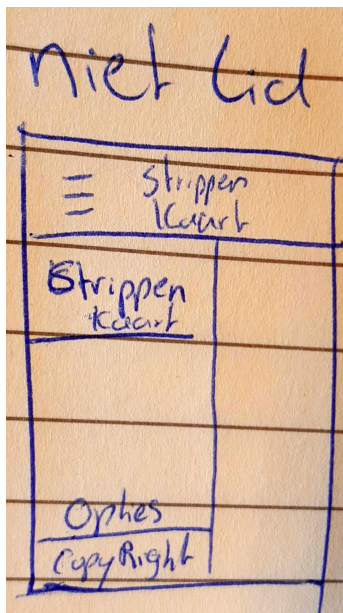 niet lid
Strippen
Kaart
Strippen
Kaart
Opties
CopyRight